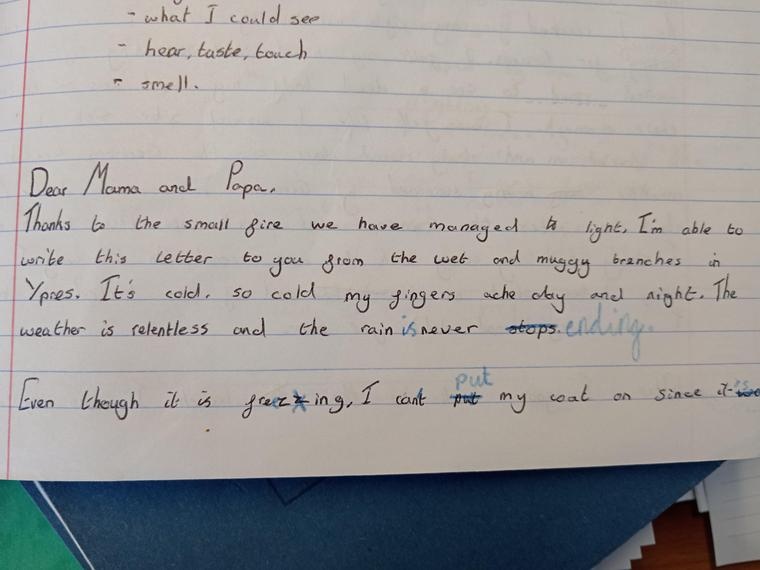 - what I could see
- hear, taste, touch
- smell.
Dear Mama and Papa,
Thanks to the small fire we have managed to light, I'm able to
write this letter to you from the wet and muggy branches in
Ypres. It's cold, so cold my fingers ache day and night. The
weather is relentless and the rain is never stops. ending.
Even though it is freezing, I cant put my coat on since it is